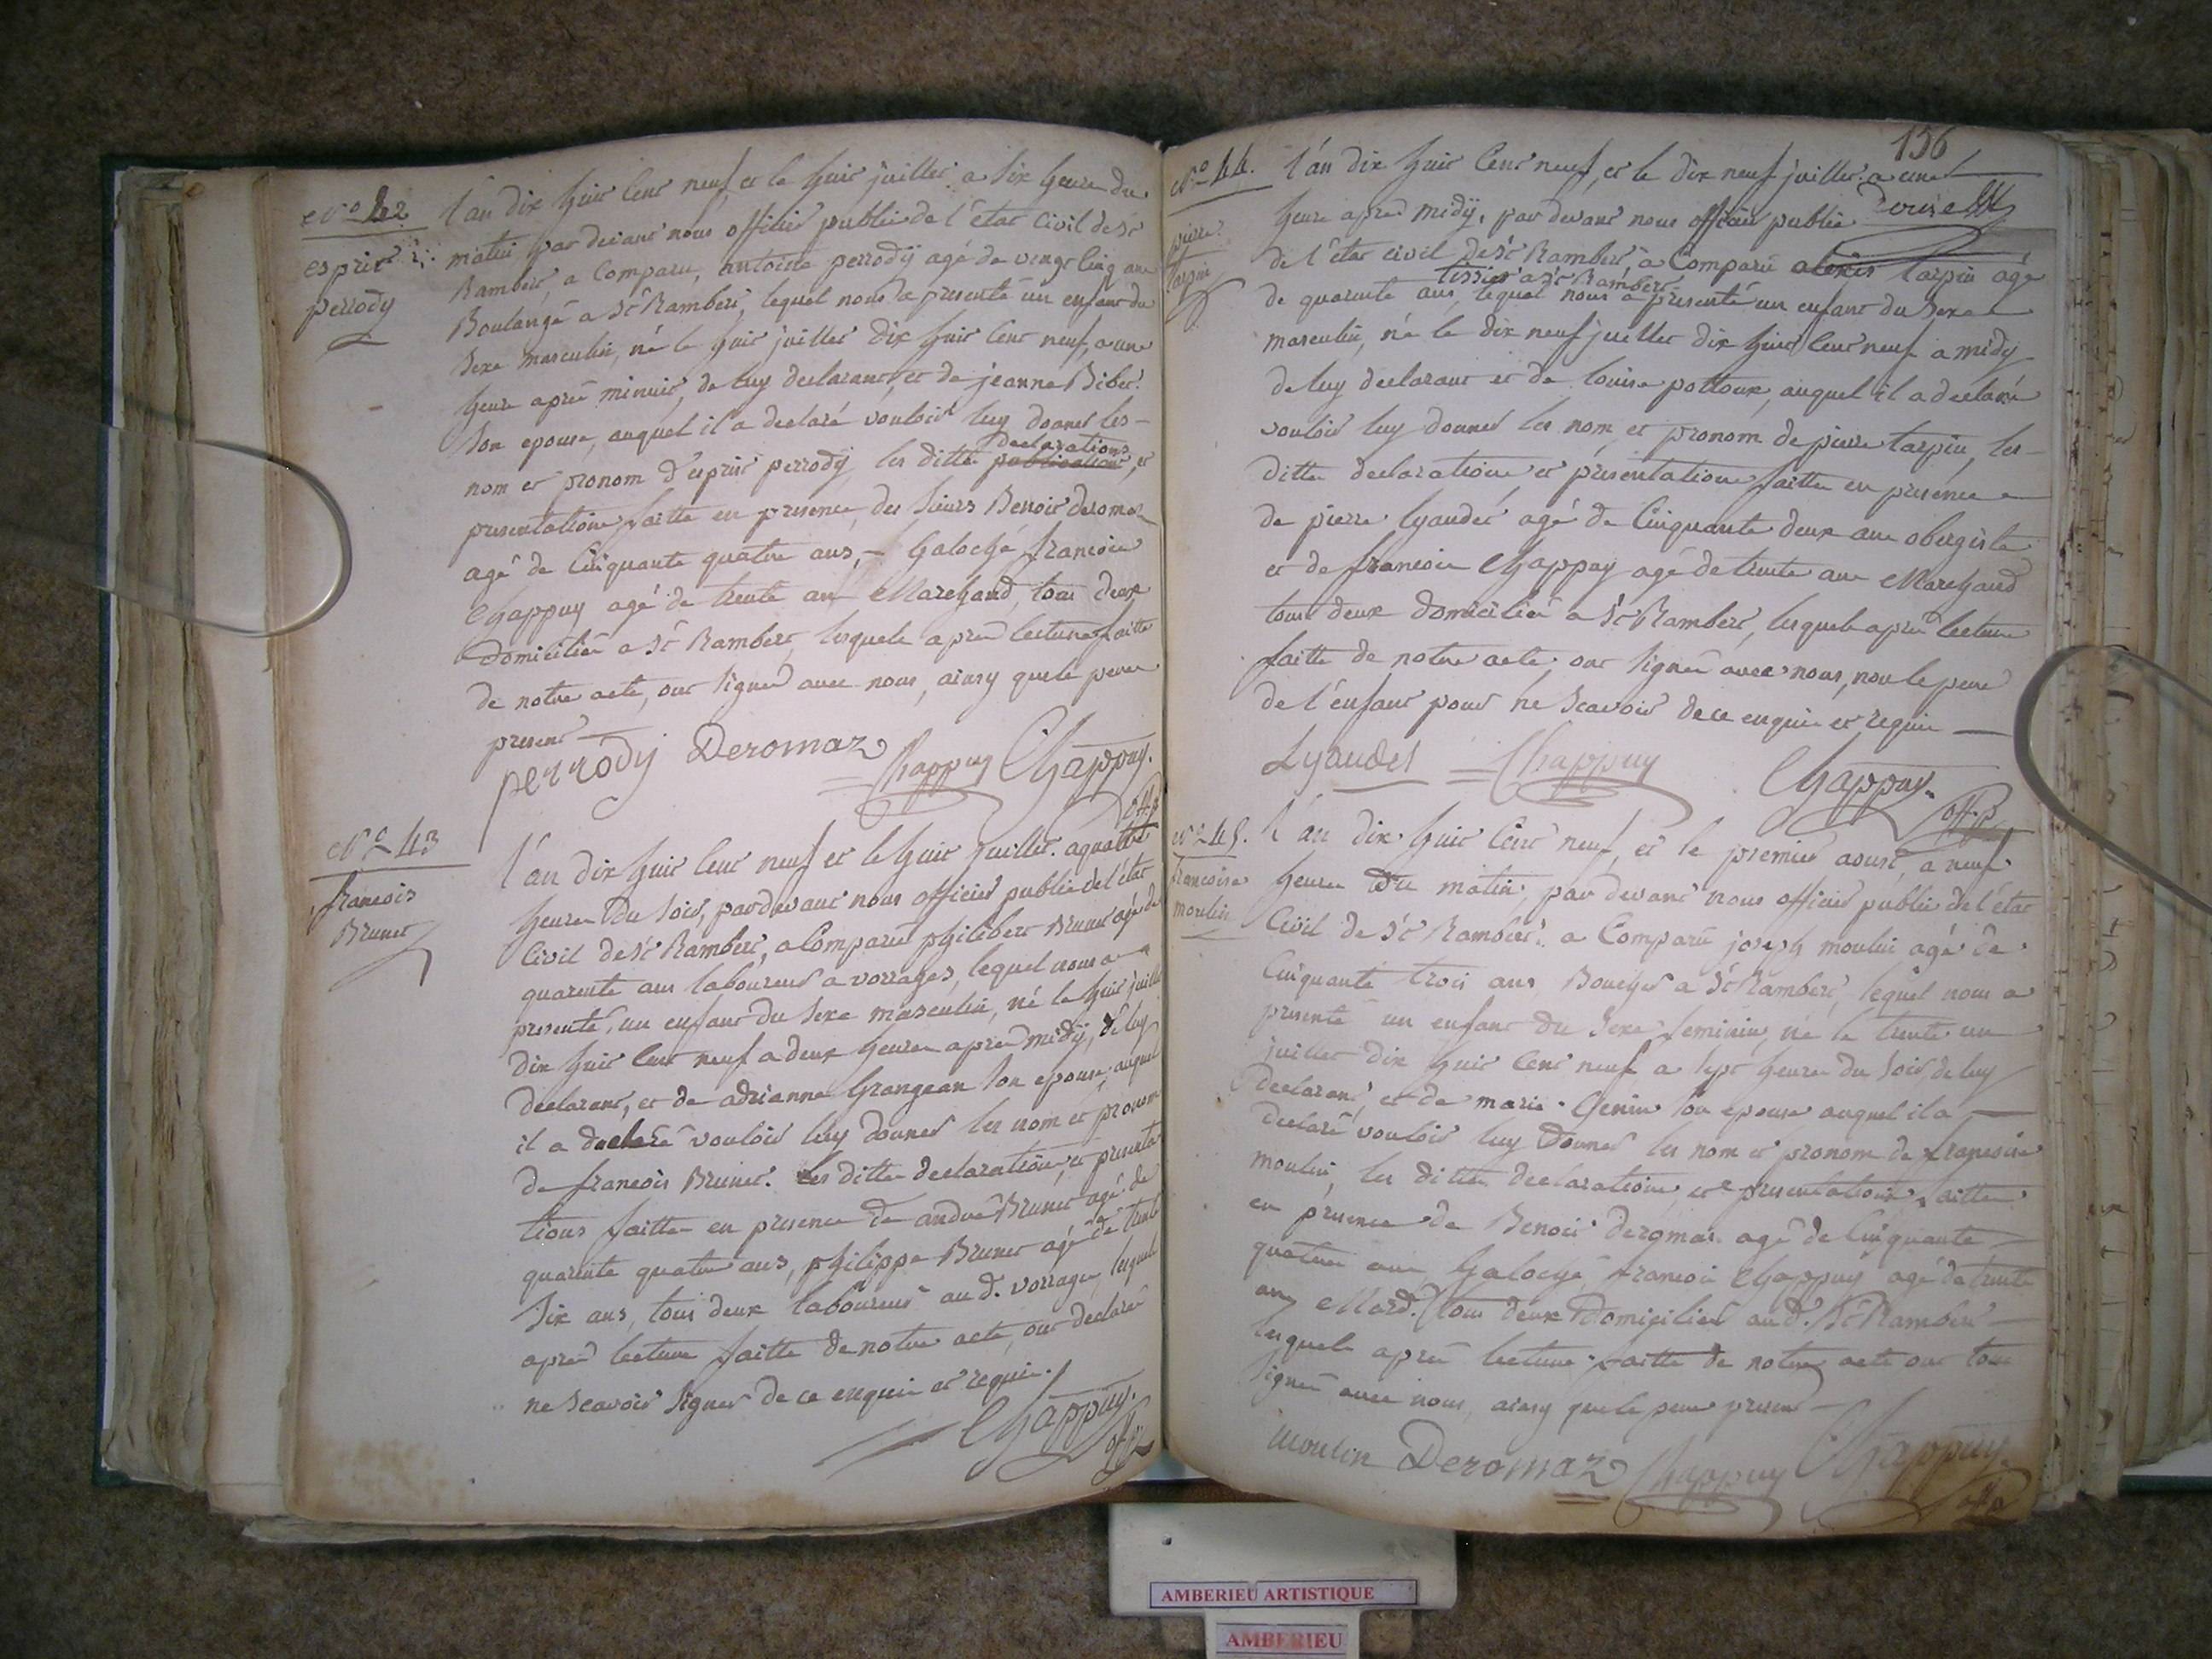 N.o 42
esprit
perrody
l'an dix huit cent neuf, et le huit juillet a six heure du
matin, par devant nous officier public de l'état civil de St
Rambert, a comparu, antoine perrodÿ agé de vingt cinq ans
Boulangé a St Rambert, lequel nous a presenté un enfant du
sexe masculin, né le huit juillet dix huit cent neuf, a une
heure après minuit, de luy declarant, et de jeanne Bibet
son epouse, auquel il a declaré vouloir luy donner les
nom et pronom d'esprit perrodÿ, les ditte declarations, et
presentations faitte en presence, des sieurs Benoit deromaz
agé de cinquante quatre ans, Galoché, francois
Chappuy agé de trente ans Marchand, tous deux
domicilié a St Rambert, lesquels après lecture faitte
de notre acte, ont signé avec nous, ainsy que le pere
present
perrody Deromaz Chappuy Chappuy.
off. p.
N.o 43
francois
Brunet
l'an dix huit cent neuf et le huit juillet. a quatre
heures du soir, par devant nous officier public de l'état
civil de St Rambert, a comparu philibert Brunet agé de
quarente ans laboureur a vorrages, lequel nous a
presenté, un enfant du sexe masculin, né le huit juillet
dix huit cent neuf a deux heures après midÿ, de luy
declarant, et de adrianne Grangean son epouse, auquel
il a declaré vouloir luy donner les nom et pronom
de francois Brunet. les ditte declaration, et presenta
tions faitte en presence de andré Brunet agé de
quarente quatre ans, philippe Brunet agé de trente
six ans, tous deux laboureurs aud. vorrages, lesquels
après lecture faitte de notre acte, ont declaré
ne scavoir signer de ce enquis et requis.
Chappuy.
off. p.
156
N.o 44.
pierre
tarpin
l'an dix huit cent neuf, et le dix neuf juillet a une
heure après midÿ, par devant nous officier public
de l'état civil de St Rambert, a comparu alexis tarpin agé
tissier a St Rambert
de quarente ans, lequel nous a presenté un enfant du sexe
masculin, né le dix neuf juillet dix huit cent neuf a midy
de luy declarant et de louise pottoux, auquel il a declaré
vouloir luy donner les nom et pronom de pierre tarpin, les
ditte declarations et presentations faitte en presence
de pierre lyaudet agé de cinquante deux ans obergiste
et de francois Chappuy agé de trente ans Marchand
tous deux domicilié a St Rambert, lesquels après lecture
faitte de notre acte ont signé avec nous, non le pere
de l'enfant pour ne scavoir de ce enquis et requis
Lyaudet Chappuy Chappuy.
off. p.
N.o 45.
francoise
moulin
l'an dix huit cent neuf, et le premier aoust, a neuf
heures du matin, par devant nous officier public de l'état
civil de St Rambert. a comparu joseph moulin agé de
cinquante trois ans Boucher a St Rambert, lequel nous a
presenté un enfant du sexe feminin, né le trente un
juillet dix huit cent neuf a sept heures du soir, de luy
declarant et de marie Genin son epouse auquel il a
declaré vouloir luy donner les nom et pronom de francoise
moulin, les dittes declarations et presentations faitte
en presence de Benoit deromas agé de cinquante
quatre ans Galoché, francois Chappuy agé de trente
ans Mard. tous deux domiciliés aud. St Rambert
lesquels après lecture faitte de notre acte ont tous
signé avec nous, ainsy que le pere present
Moulin Deromaz Chappuy Chappuy.
off. p.
AMBERIEU ARTISTIQUE
AMBERIEU